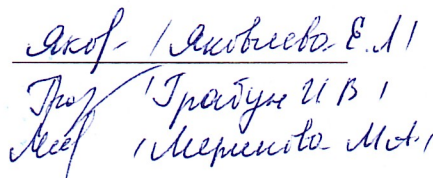 Яков- / Яковлева Е.Л /
Гра / Грабун И В /
Мер / Меринова М.А. /